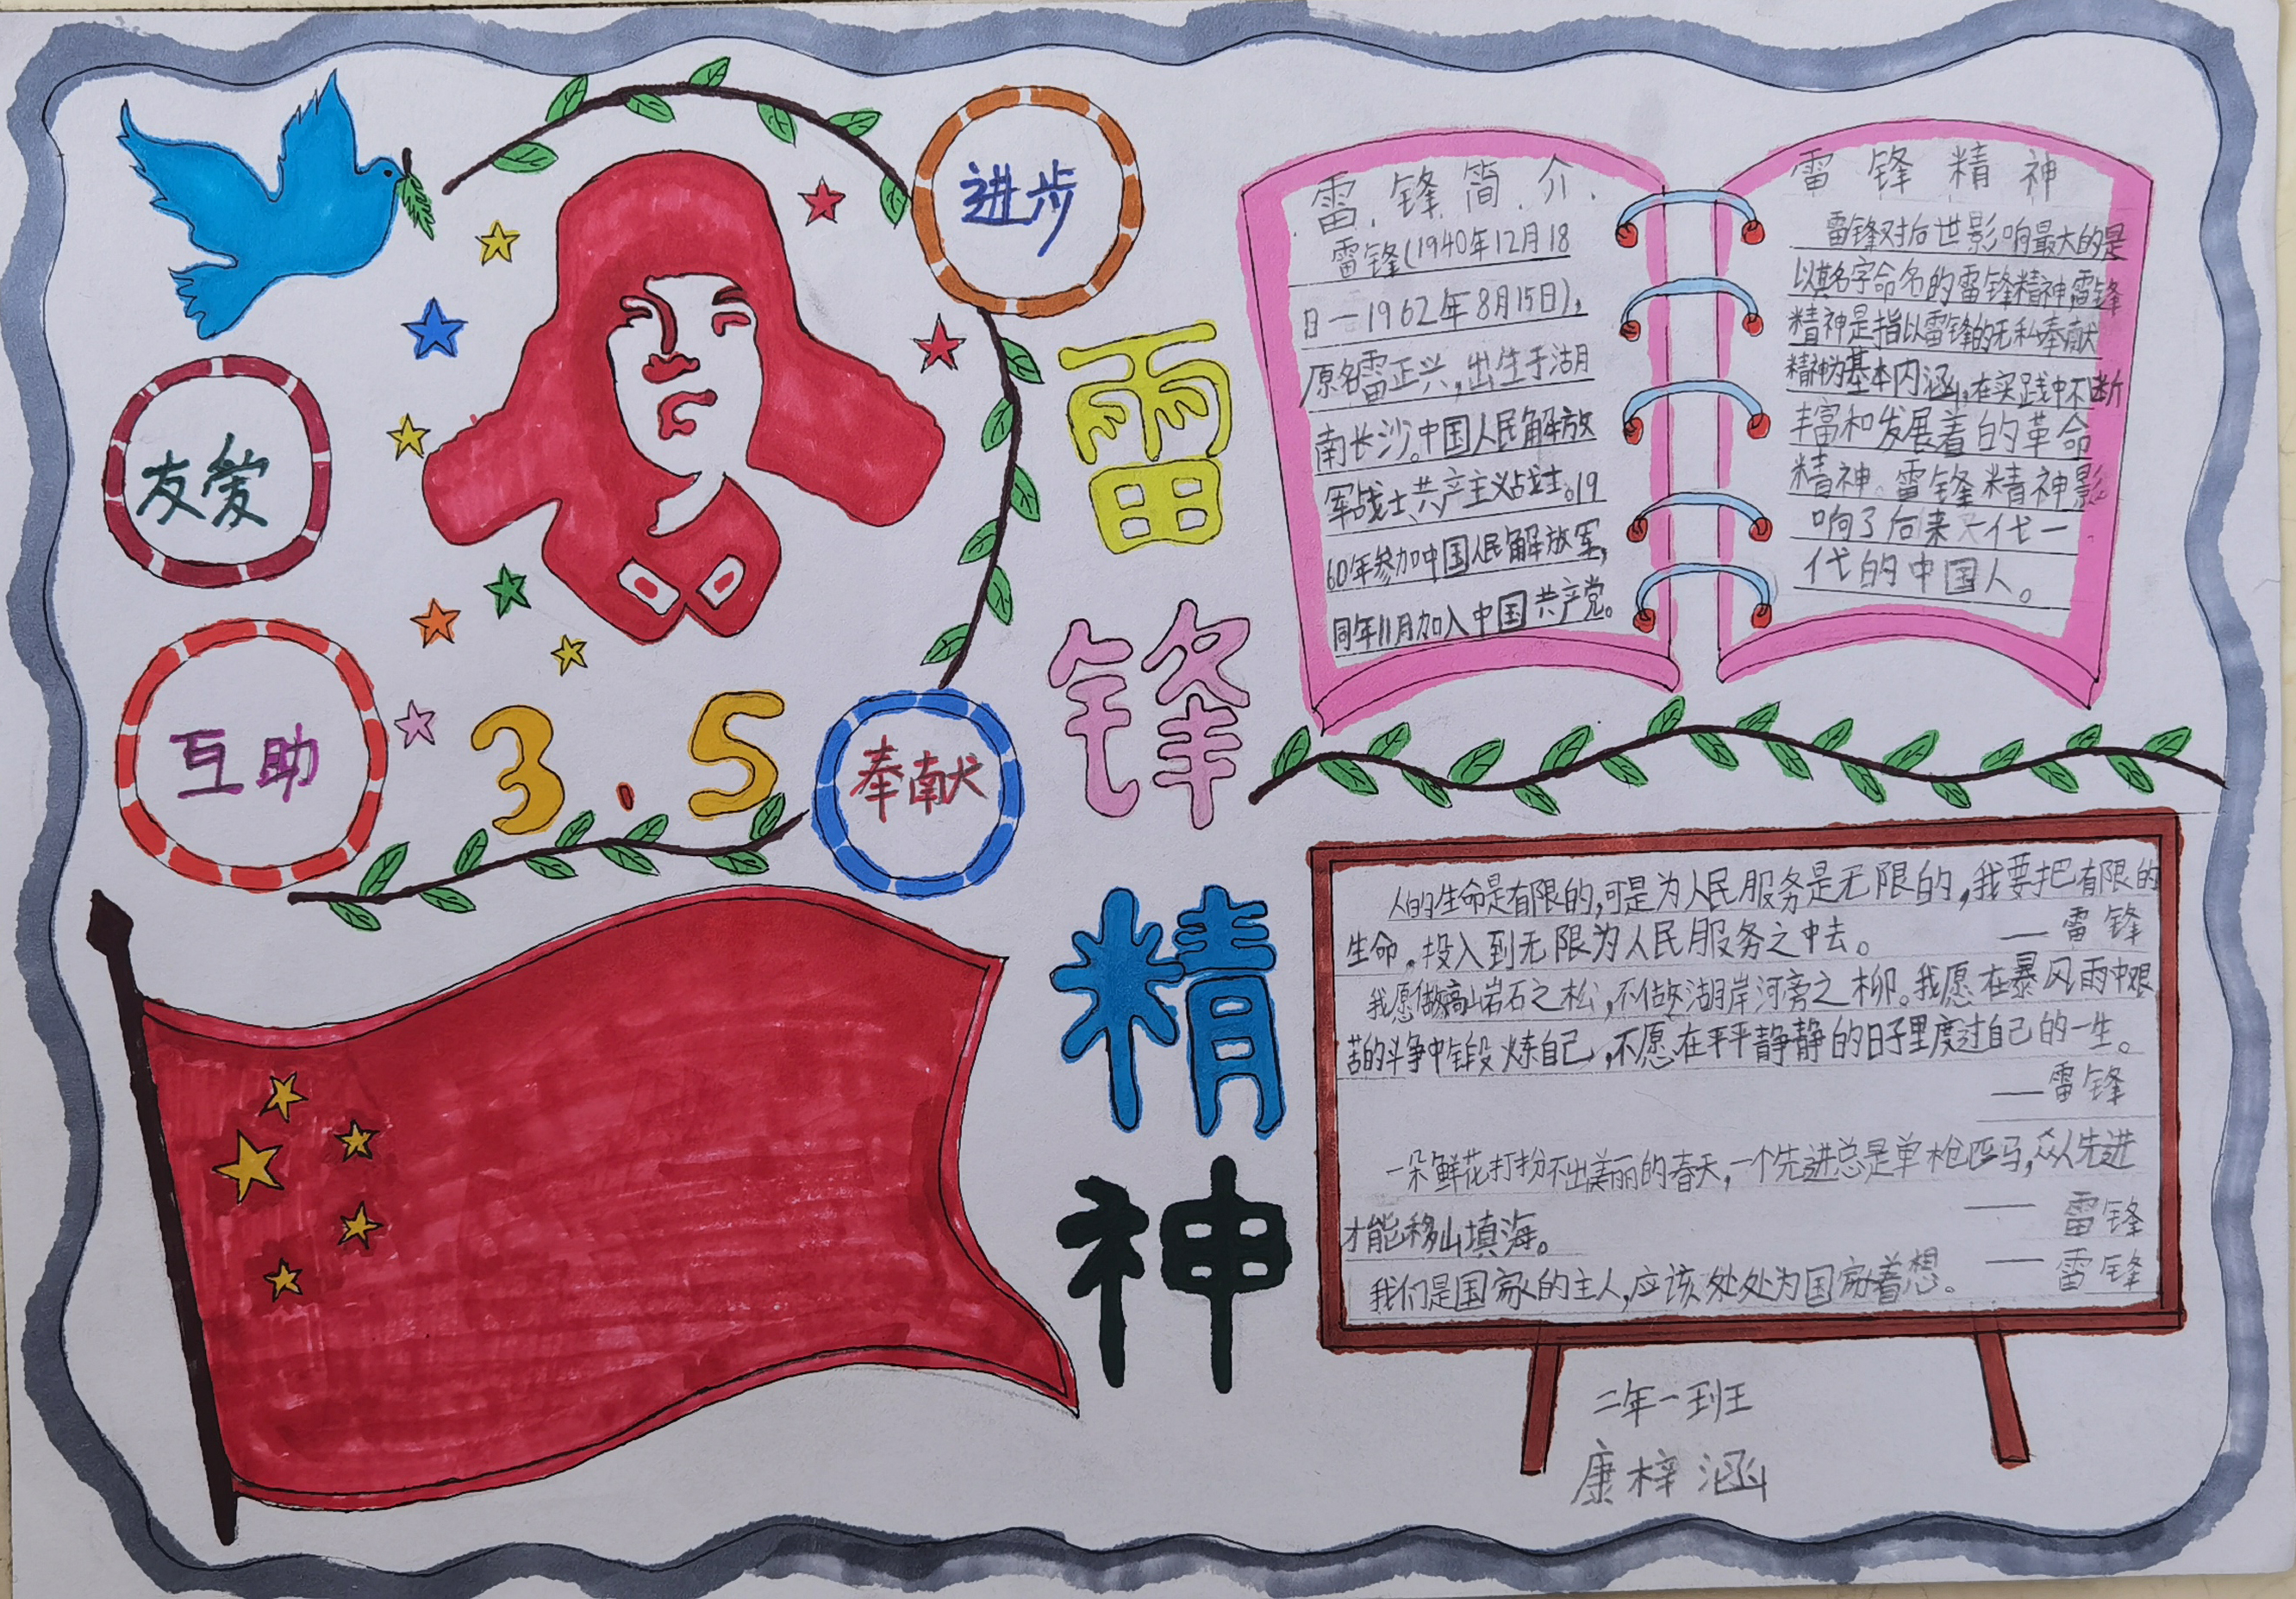 进步
友爱
互助
3.5
奉献
雷
锋
精
神
雷锋简介
雷锋(1940年12月18
日一1962年8月15日),
原名雷正兴,出生于湖
南长沙。中国人民解放
军战士、共产主义战士。19
60年参加中国人民解放军,
同年11月加入中国共产党。
雷锋精神
雷锋对后世影响最大的是
以其名字命名的雷锋精神,雷锋
精神是指以雷锋的无私奉献
精神为基本内涵,在实践中不断
丰富和发展着的革命
精神。雷锋精神影
响了后来一代一
代的中国人。
人的生命是有限的,可是为人民服务是无限的,我要把有限的
生命。投入到无限为人民服务之中去。 ——雷锋
我愿做高山岩石之松,不做湖岸河旁之柳。我愿在暴风雨中艰
苦的斗争中锻炼自己,不愿在平平静静的日子里度过自己的一生。
——雷锋
一朵鲜花打扮不出美丽的春天,一个先进总是单枪匹马,众人先进
才能移山填海。 ——雷锋
我们是国家的主人,应该处处为国家着想。 ——雷锋
二年一班
康梓涵